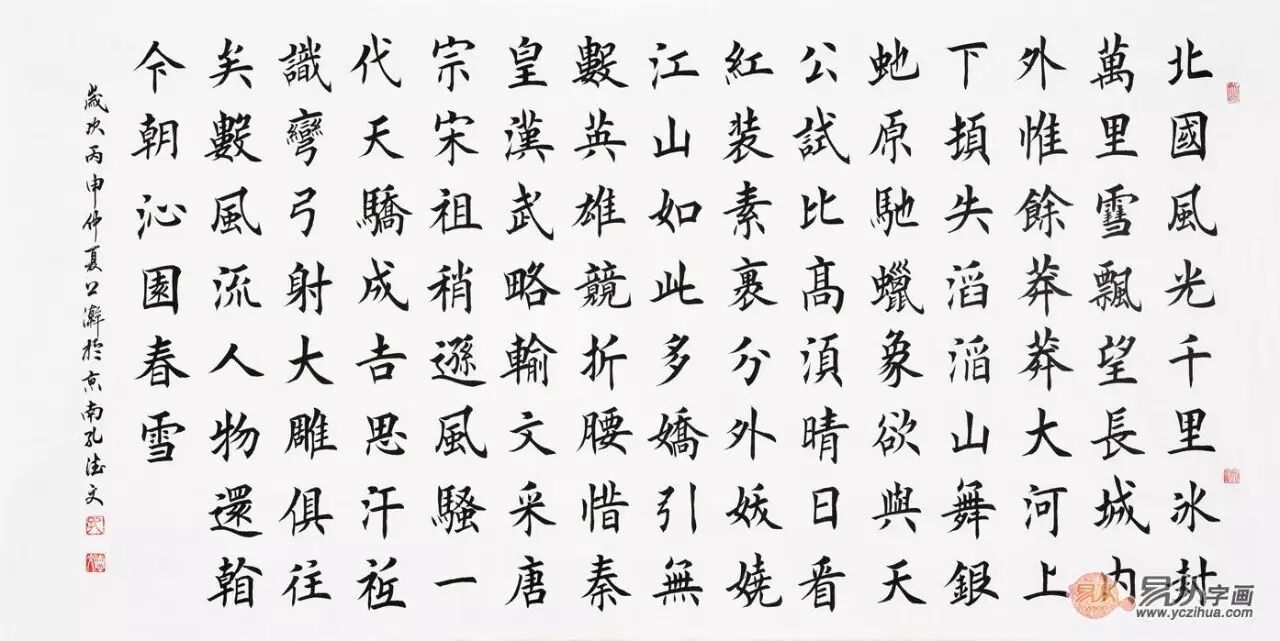 北國風光千里冰封
萬里雪飄望長城内
外惟餘莽莽大河上
下頓失滔滔山舞銀
虵原馳蠟象欲與天
公試比髙須晴日看
紅装素裹分外妖嬈
江山如此多嬌引無
數英雄競折腰惜秦
皇漢武略輸文采唐
宗宋祖稍遜風騷一
代天驕成吉思汗祗
識彎弓射大雕俱往
矣數風流人物還看
今朝沁園春雪
歲次丙申仲夏上澣於京南孔德文
易从字画
www.yczihua.com